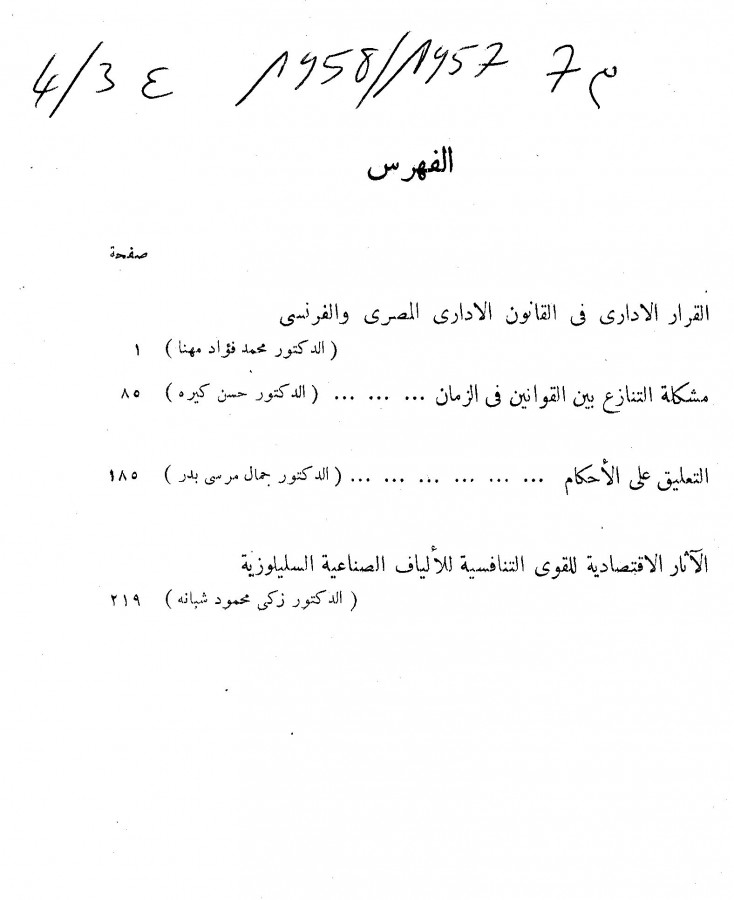 م 7 1957/1958 ع 4/3
الفهرس
صفحة
القرار الادارى فى القانون الادارى المصرى والفرنسى
( الدكتور محمد فؤاد مهنا ) ١
مشكلة التنازع بين القوانين فى الزمان ... ... ... ( الدكتور حسن كيره ) ٨٥
التعليق على الأحكام ... ... ... ... ... ... ( الدكتور جمال مرسى بدر ) ١٨٥
الآثار الاقتصادية للقوى التنافسية للألياف الصناعية السليلوزية
( الدكتور زكى محمود شبانه ) ٢١٩